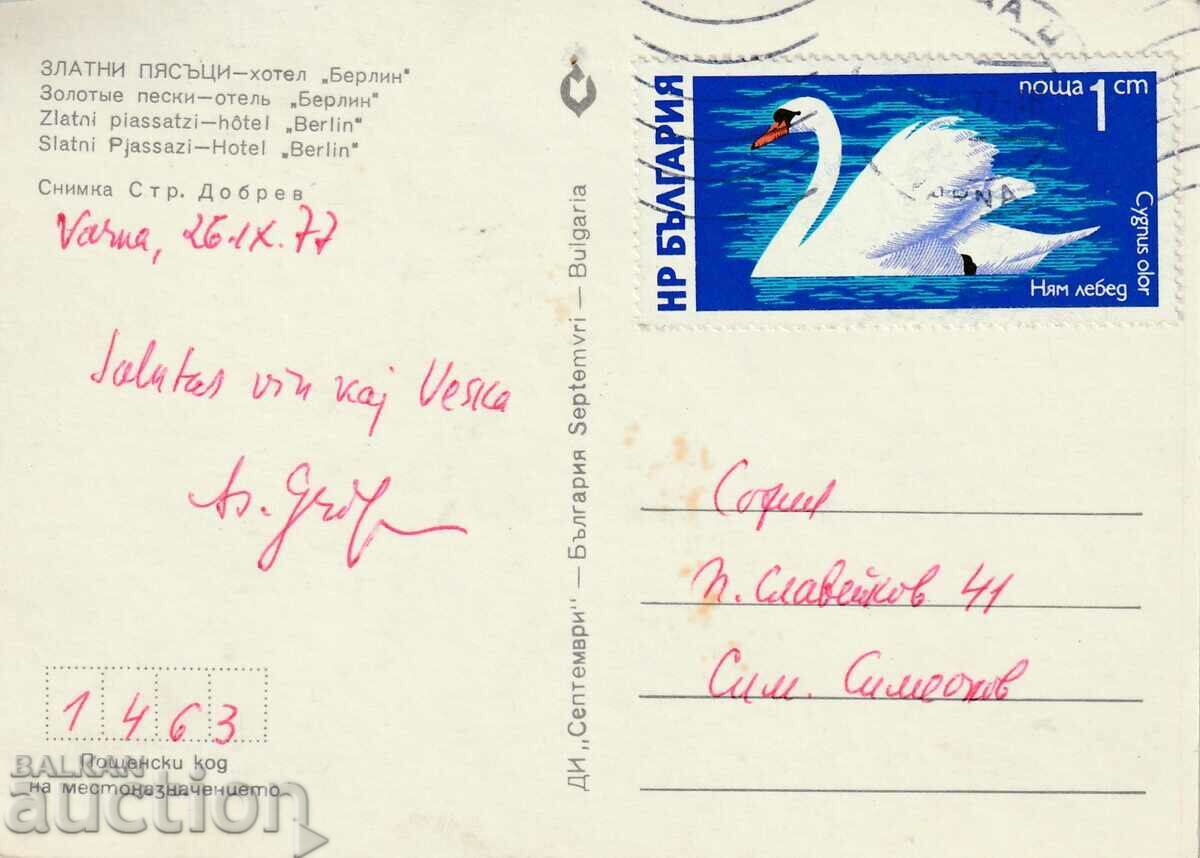 ЗЛАТНИ ПЯСЪЦИ—хотел „Берлин"
Золотые пески—отель „Берлин"
Zlatni piassatzi—hôtel „Berlin"
Slatni Pjassazi—Hotel „Berlin"
Снимка Стр. Добрев
Varna, 26.IX.77
Salutas vin kaj Veska
1463
Пощенски код
на местоназначението
BALKAN
auction
ДИ „Септември" — България Septemvri — Bulgaria
НР БЪЛГАРИЯ
поща 1 ст
Cygnus olor
Ням лебед
София
П. Славейков 41
Сим. Симеонов